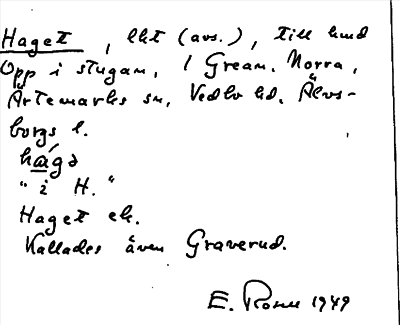 Haget, lht (avs.), till hmd
Opp i stugan, 1 Gream. Norra,
Ärtemarks sn, Vedbo hd. Älvs-
borgs l.
hágə
"i H."
Haget ek.
Kallades även Graverud.
E. 1949